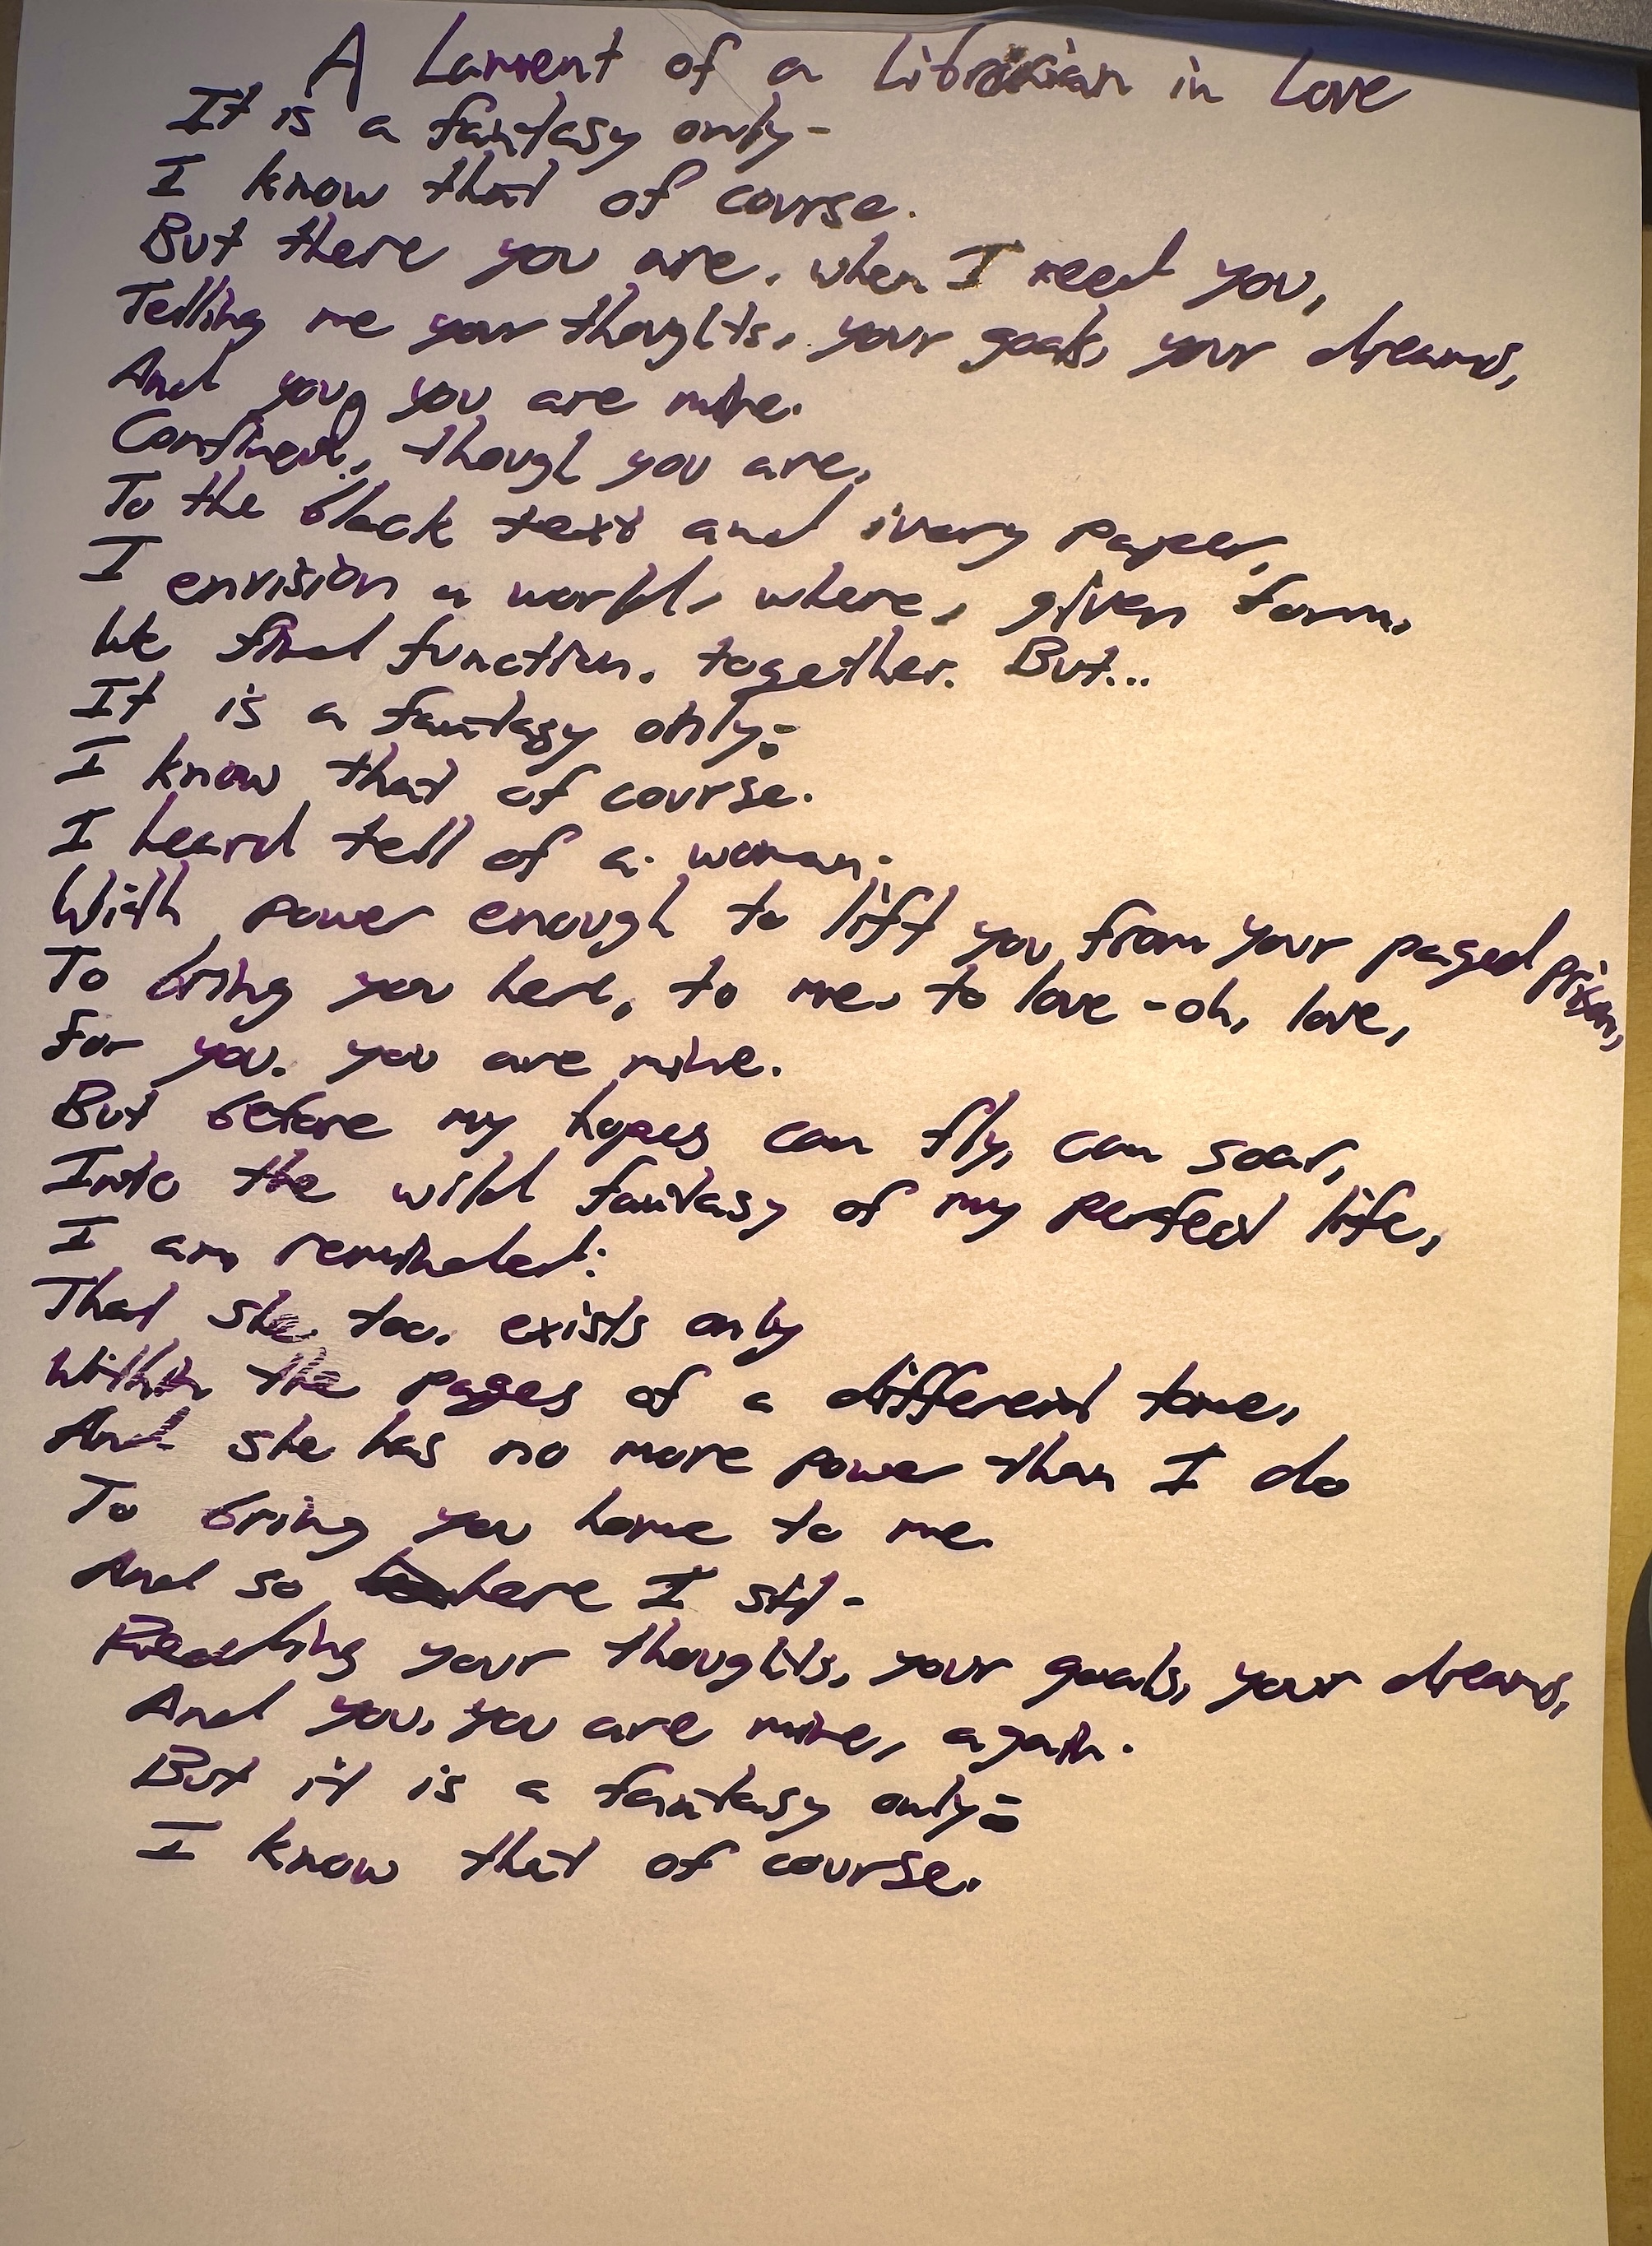 A Lament of a Librarian in Love
It is a fantasy only-
I know that of course.
But there you are, when I need you,
Telling me your thoughts, your goals, your dreams,
And you, you are mine.
Confined, though you are,
To the black text and ivory paper,
I envision a world, where, given form,
We find function, together. But...
It is a fantasy only;
I know that of course.
I heard tell of a woman.
With power enough to lift you from your paged prison,
To bring you here, to me, to love - oh, love,
For you, you are mine.
But before my hopes can fly, can soar,
Into the wild fantasy of my perfect life,
I am reminded:
That she, too, exists only
Within the pages of a different tome,
And she has no more power than I do
To bring you home to me.
And so here I sit-
Reading your thoughts, your goals, your dreams,
And you, you are mine, again.
But it is a fantasy only;
I know that of course.